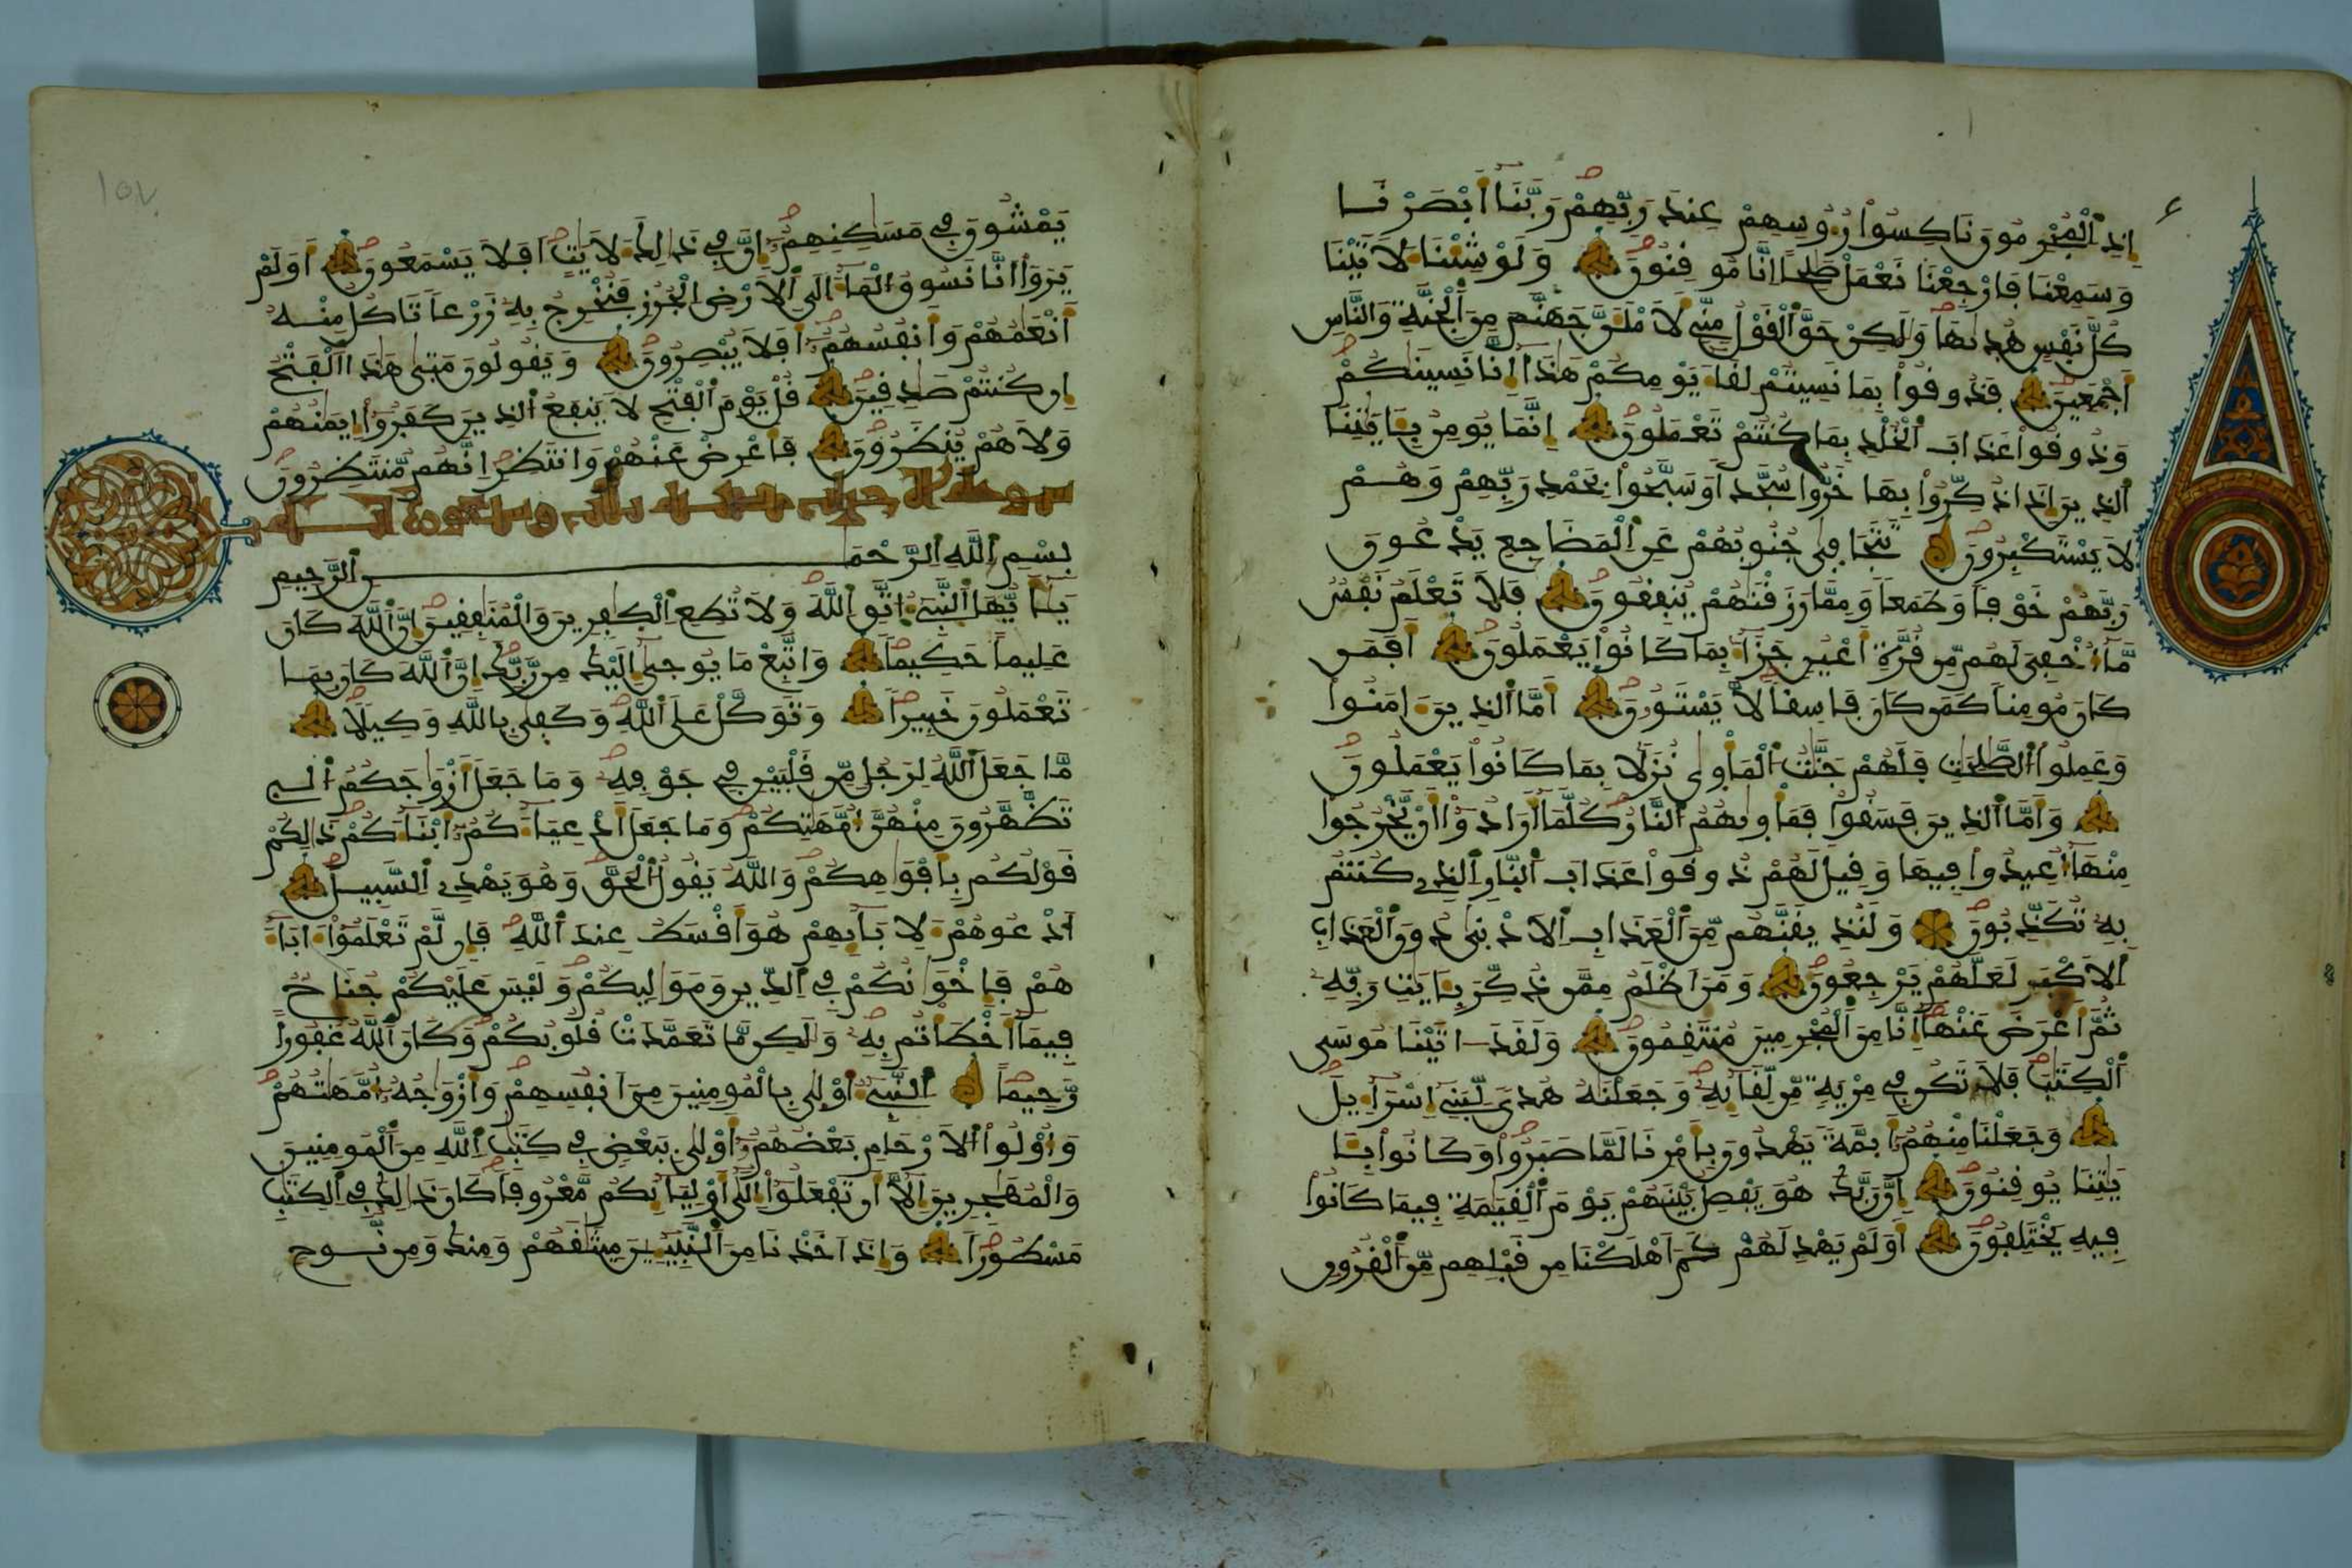 إِذِ الْمُجْرِمُونَ نَاكِسُوا رُءُوسِهِمْ عِندَ رَبِّهِمْ رَبَّنَا أَبْصَرْنَا
وَسَمِعْنَا فَارْجِعْنَا نَعْمَلْ صَٰلِحاً اِنَّا مُوقِنُونَ وَلَوْ شِئْنَا لَأَتَيْنَا
كُلَّ نَفْسٍ هُدَىٰهَا وَلَٰكِنْ حَقَّ الْقَوْلُ مِنِّي لَأَمْلَأَنَّ جَهَنَّمَ مِنَ الْجِنَّةِ وَالنَّاسِ
أَجْمَعِينَ فَذُوقُوا بِمَا نَسِيتُمْ لِقَاءَ يَوْمِكُمْ هَٰذَا إِنَّا نَسِينَٰكُمْ
وَذُوقُوا عَذَابَ الْخُلْدِ بِمَا كُنتُمْ تَعْمَلُونَ إِنَّمَا يُومِنُ بِـَٔايَٰتِنَا
الذِينَ إِذَا ذُكِّرُوا بِهَا خَرُّوا سُجَّداً وَسَبَّحُوا بِحَمْدِ رَبِّهِمْ وَهُمْ
لَا يَسْتَكْبِرُونَ تَتَجَافَىٰ جُنُوبُهُمْ عَنِ الْمَضَاجِعِ يَدْعُونَ
رَبَّهُمْ خَوْفاً وَطَمَعاً وَمِمَّا رَزَقْنَٰهُمْ يُنفِقُونَ فَلَا تَعْلَمُ نَفْسٌ
مَّا أُخْفِيَ لَهُم مِّن قُرَّةِ أَعْيُنٍ جَزَاءً بِمَا كَانُوا يَعْمَلُونَ أَفَمَن
كَانَ مُومِناً كَمَن كَانَ فَاسِقاً لَّا يَسْتَوُۥنَ أَمَّا الذِينَ ءَامَنُوا
وَعَمِلُوا الصَّٰلِحَٰتِ فَلَهُمْ جَنَّٰتُ الْمَأْوَىٰ نُزُلاً بِمَا كَانُوا يَعْمَلُونَ
وَأَمَّا الذِينَ فَسَقُوا فَمَأْوَىٰهُمُ النَّارُ كُلَّمَا أَرَادُوا أَنْ يَّخْرُجُوا
مِنْهَا أُعِيدُوا فِيهَا وَقِيلَ لَهُمْ ذُوقُوا عَذَابَ النَّارِ الذِي كُنتُم
بِهِ تُكَذِّبُونَ وَلَنُذِيقَنَّهُم مِّنَ الْعَذَابِ الْأَدْنَىٰ دُونَ الْعَذَابِ
الْأَكْبَرِ لَعَلَّهُمْ يَرْجِعُونَ وَمَنَ أَظْلَمُ مِمَّن ذُكِّرَ بِـَٔايَٰتِ رَبِّهِ
ثُمَّ أَعْرَضَ عَنْهَا إِنَّا مِنَ الْمُجْرِمِينَ مُنتَقِمُونَ وَلَقَدَ ـاتَيْنَا مُوسَى
الْكِتَٰبَ فَلَا تَكُن فِي مِرْيَةٍ مِّن لِّقَائِهِ وَجَعَلْنَٰهُ هُدىً لِّبَنِي إِسْرَاءِيلَ
وَجَعَلْنَا مِنْهُمُ أَئِمَّةً يَهْدُونَ بِأَمْرِنَا لَمَّا صَبَرُوا وَكَانُوا بِـَٔا
يَٰتِنَا يُوقِنُونَ إِنَّ رَبَّكَ هُوَ يَفْصِلُ بَيْنَهُمْ يَوْمَ الْقِيَٰمَةِ فِيمَا كَانُوا
فِيهِ يَخْتَلِفُونَ أَوَلَمْ يَهْدِ لَهُمْ كَمَ أَهْلَكْنَا مِن قَبْلِهِم مِّنَ الْقُرُونِ
١٥٧
يَمْشُونَ فِي مَسَٰكِنِهِمُ إِنَّ فِي ذَٰلِكَ لَأٓيَٰتٍ أَفَلَا يَسْمَعُونَ أَوَلَمْ
يَرَوَا أَنَّا نَسُوقُ الْمَاءَ إِلَى الْأَرْضِ الْجُرُزِ فَنُخْرِجُ بِهِ زَرْعاً تَاكُلُ مِنْهُ
أَنْعَٰمُهُمْ وَأَنفُسُهُمُ أَفَلَا يُبْصِرُونَ وَيَقُولُونَ مَتَىٰ هَٰذَا الْفَتْحُ
إِن كُنتُمْ صَٰدِقِينَ قُلْ يَوْمَ الْفَتْحِ لَا يَنفَعُ الذِينَ كَفَرُوا إِيمَٰنُهُمْ
وَلَا هُمْ يُنظَرُونَ فَأَعْرِضْ عَنْهُمْ وَانتَظِرِ إِنَّهُم مُّنتَظِرُونَ
بِسْمِ اللَّهِ الرَّحْمَٰنِ الرَّحِيمِ
يَٰأَيُّهَا النَّبِيءُ اتَّقِ اللَّهَ وَلَا تُطِعِ الْكَٰفِرِينَ وَالْمُنَٰفِقِينَ إِنَّ اللَّهَ كَانَ
عَلِيماً حَكِيماً وَاتَّبِعْ مَا يُوحَىٰ إِلَيْكَ مِن رَّبِّكَ إِنَّ اللَّهَ كَانَ بِمَا
تَعْمَلُونَ خَبِيراً وَتَوَكَّلْ عَلَى اللَّهِ وَكَفَىٰ بِاللَّهِ وَكِيلاً
مَّا جَعَلَ اللَّهُ لِرَجُلٍ مِّن قَلْبَيْنِ فِي جَوْفِهِ وَمَا جَعَلَ أَزْوَٰجَكُمُ الـِٕ
تَظَّهَّرُونَ مِنْهُنَّ أُمَّهَٰتِكُمْ وَمَا جَعَلَ أَدْعِيَاءَكُمُ أَبْنَاءَكُمْ ذَٰلِكُمْ
قَوْلُكُم بِأَفْوَٰهِكُمْ وَاللَّهُ يَقُولُ الْحَقَّ وَهُوَ يَهْدِي السَّبِيلَ
اَدْعُوهُمْ لِأٓبَائِهِمْ هُوَ أَقْسَطُ عِندَ اللَّهِ فَإِن لَّمْ تَعْلَمُوا ءَابَاءَ
هُمْ فَإِخْوَٰنُكُمْ فِي الدِّينِ وَمَوَٰلِيكُمْ وَلَيْسَ عَلَيْكُمْ جُنَاحٌ
فِيمَا أَخْطَأْتُم بِهِ وَلَٰكِن مَّا تَعَمَّدَتْ قُلُوبُكُمْ وَكَانَ اللَّهُ غَفُوراً
رَّحِيماً النَّبِيءُ أَوْلَىٰ بِالْمُومِنِينَ مِنَ أَنفُسِهِمْ وَأَزْوَٰجُهُ أُمَّهَٰتُهُمْ
وَأُوْلُوا الْأَرْحَامِ بَعْضُهُمُ أَوْلَىٰ بِبَعْضٍ فِي كِتَٰبِ اللَّهِ مِنَ الْمُومِنِينَ
وَالْمُهَٰجِرِينَ إِلَّا أَن تَفْعَلُوا إِلَىٰ أَوْلِيَائِكُم مَّعْرُوفاً كَانَ ذَٰلِكَ فِي الْكِتَٰبِ
مَسْطُوراً وَإِذَ أَخَذْنَا مِنَ النَّبِيـِٕينَ مِيثَٰقَهُمْ وَمِنكَ وَمِن نُّوحٍ